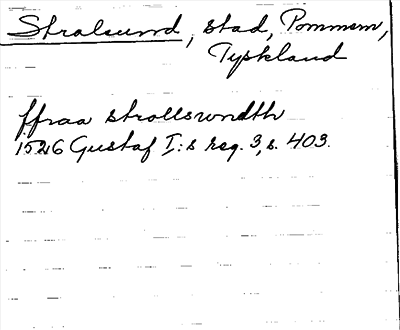 Stralsund, stad, Pommern,
Tyskland
ffraa strallswndth
1526 Gustaf I:s reg. 3, s. 403.